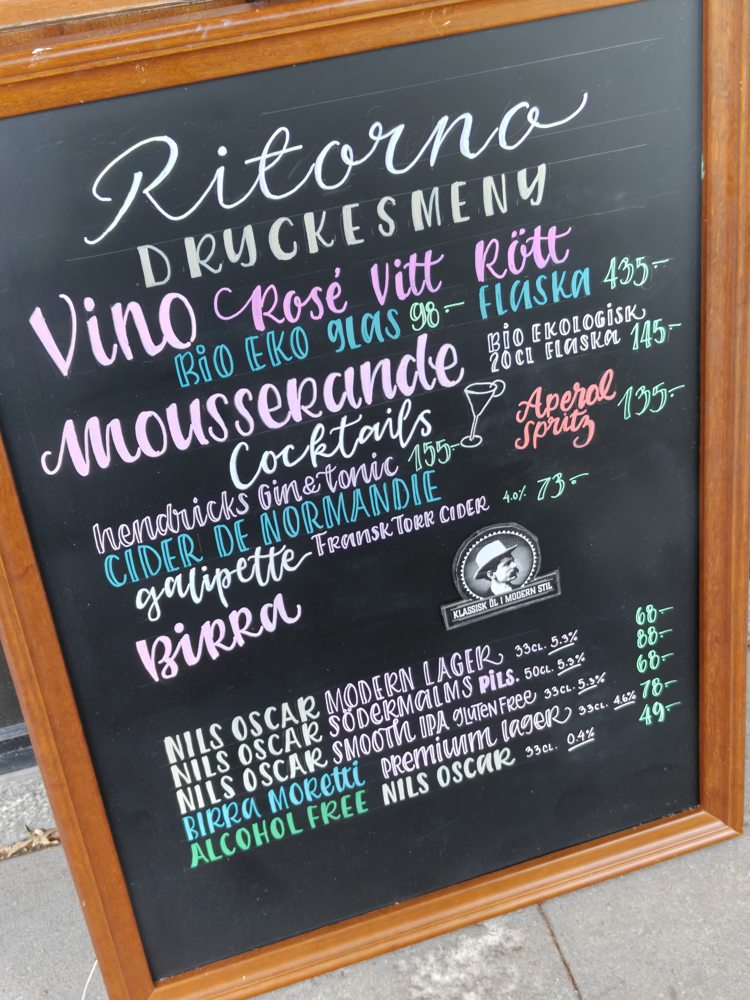 Ritorno
DRYCKESMENY
Vino Rosé Vitt Rött
BIO EKO glas 98:- FLASKA 435:-
Mousserande BIO EKOLOGISK
20CL FLASKA 145:-
Cocktails Aperol
Spritz 135:-
hendricks Gin & tonic 155:-
CIDER DE NORMANDIE
galipette FRANSK TORR CIDER 4.0% 73:-
BIRRA
KLASSISK ÖL I MODERN STIL
NILS OSCAR MODERN LAGER 33CL. 5.3% 68:-
NILS OSCAR SÖDERMALMS PILS. 50CL. 5.3% 88:-
NILS OSCAR SMOOTH IPA GLUTEN FREE 33CL. 5.3% 68:-
BIRRA MORETTI premium lager 33CL. 4.6% 78:-
ALCOHOL FREE NILS OSCAR 33CL. 0.4% 49:-